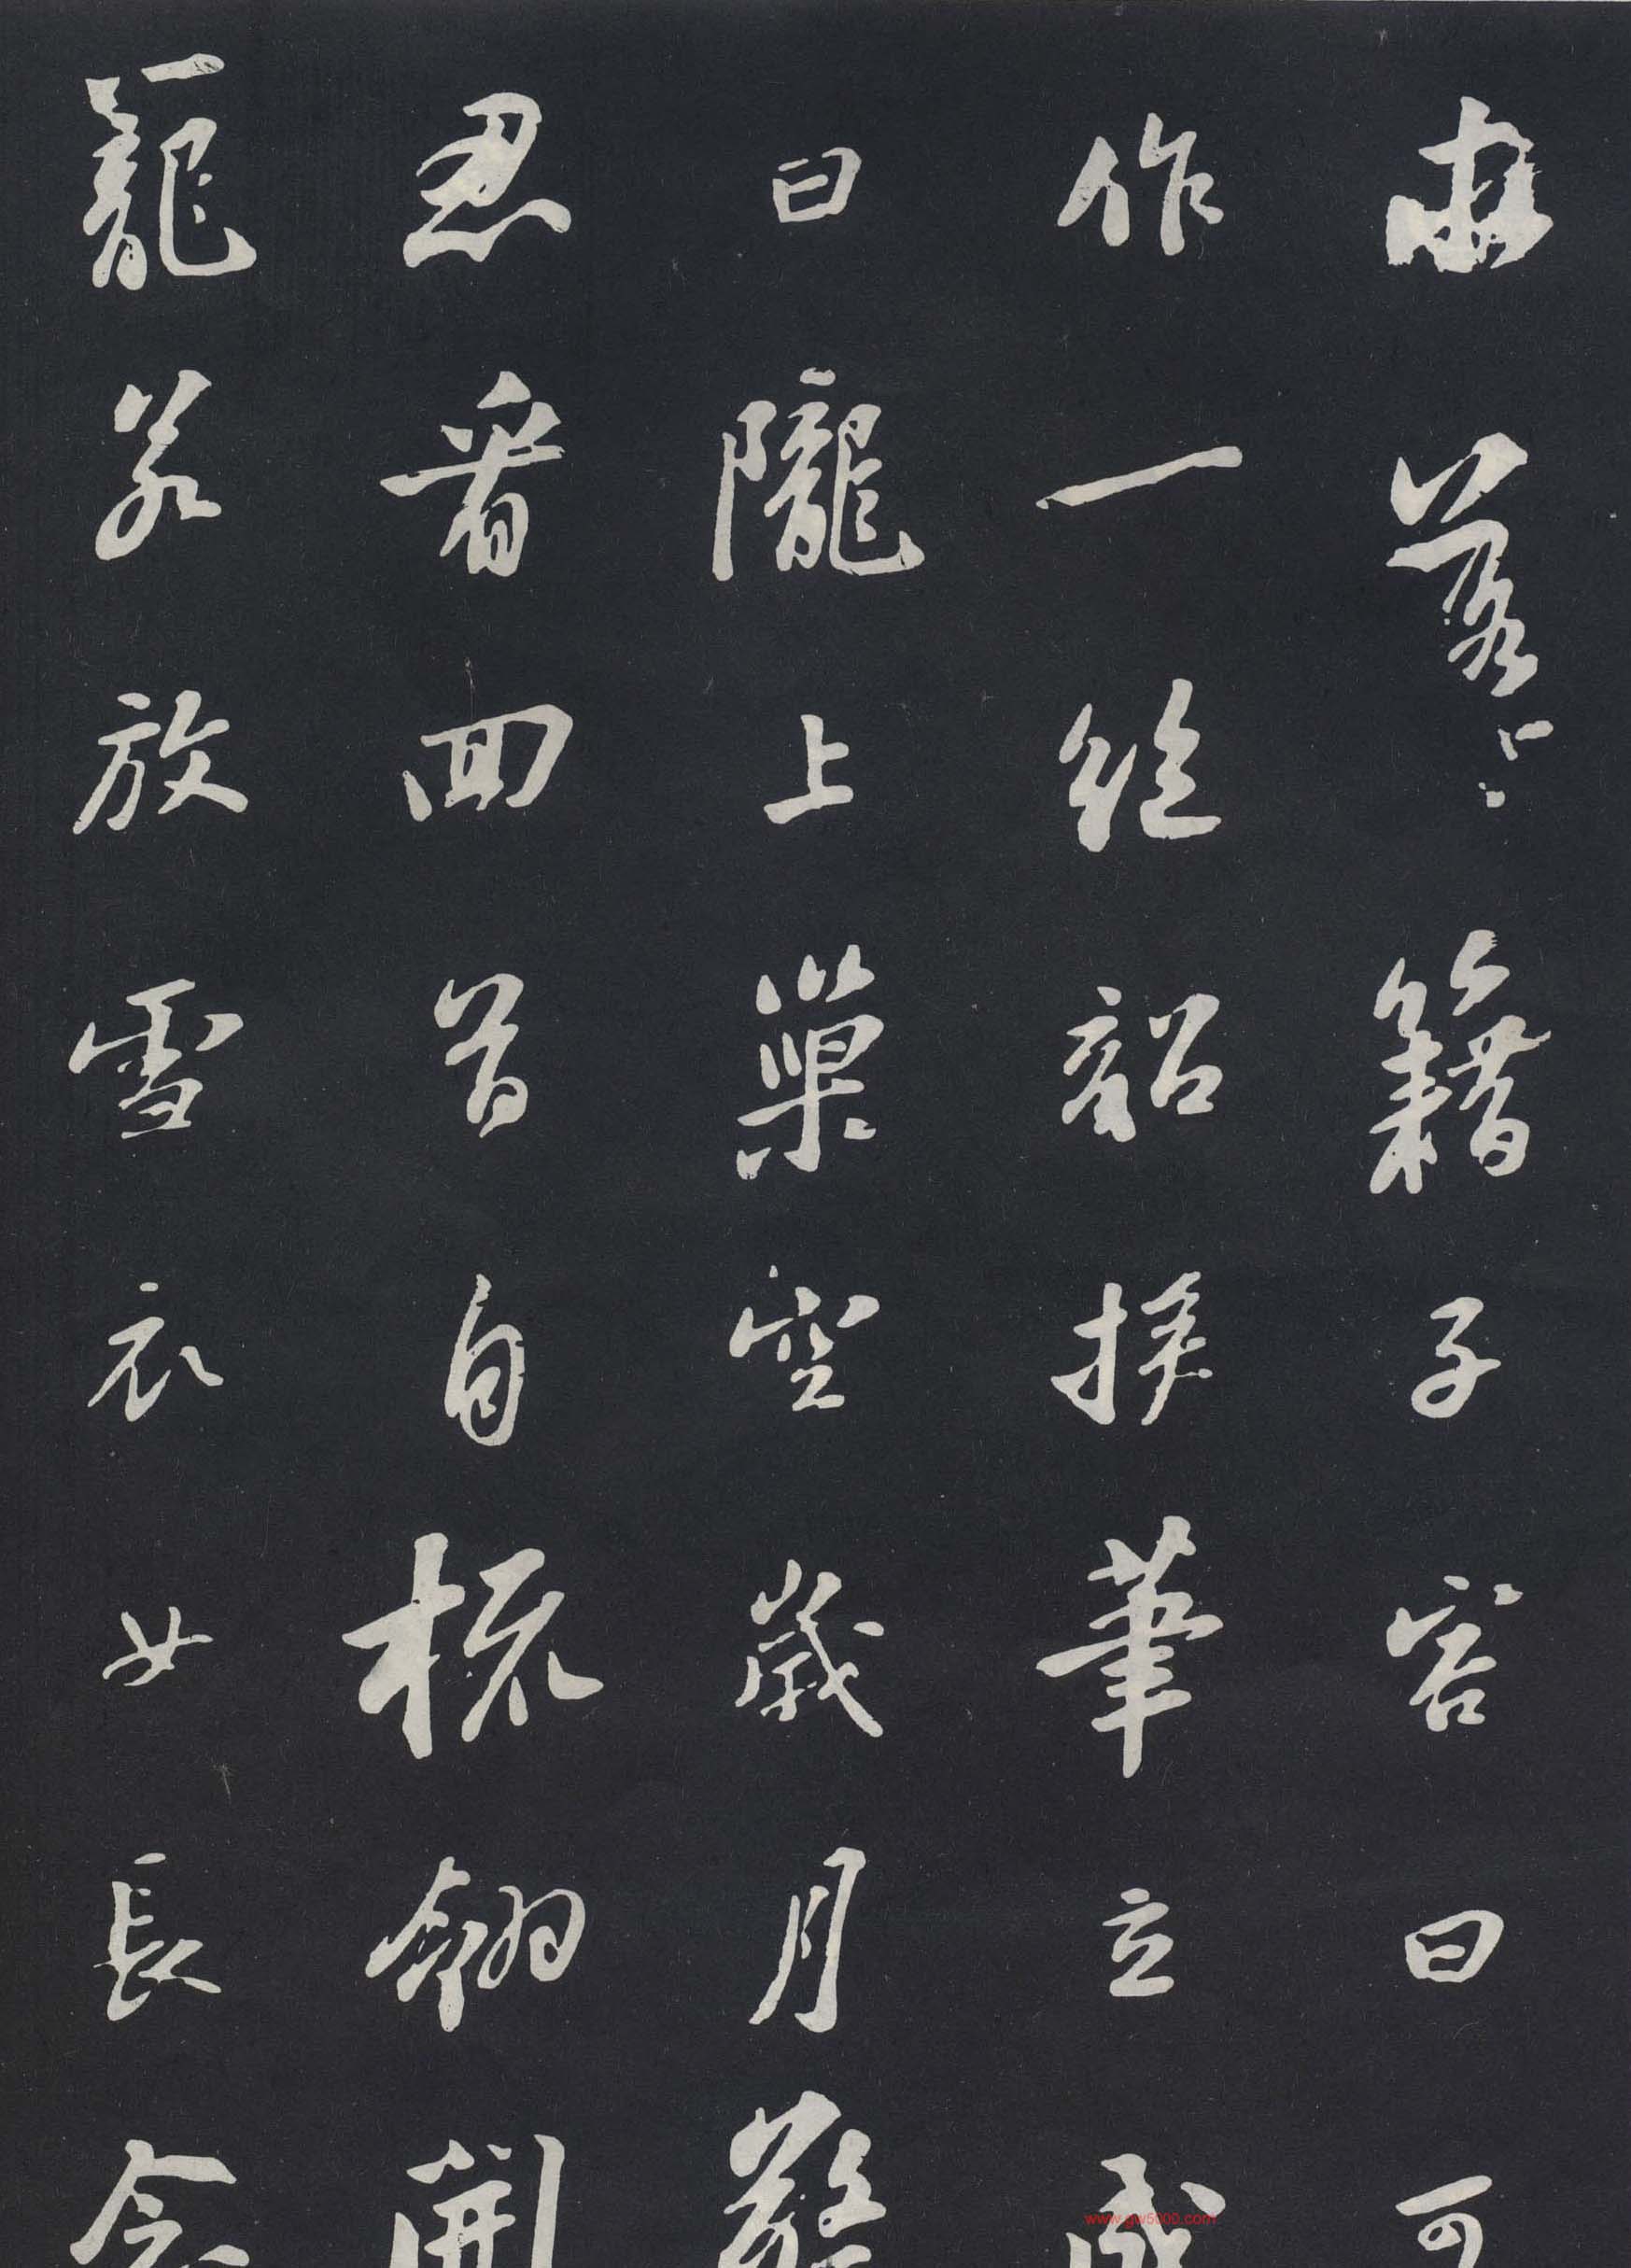 求落籍子容曰可
作一絕韶援筆立成
曰隴上巢空歲月驚
忍看回首自梳翎開
籠若放雪衣女長念
www.gw5000.com